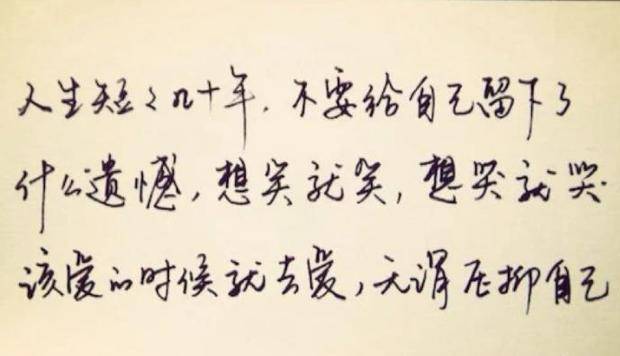 人生短短几十年，不要给自己留下了
什么遗憾，想笑就笑，想哭就哭
该爱的时候就去爱，无谓压抑自己